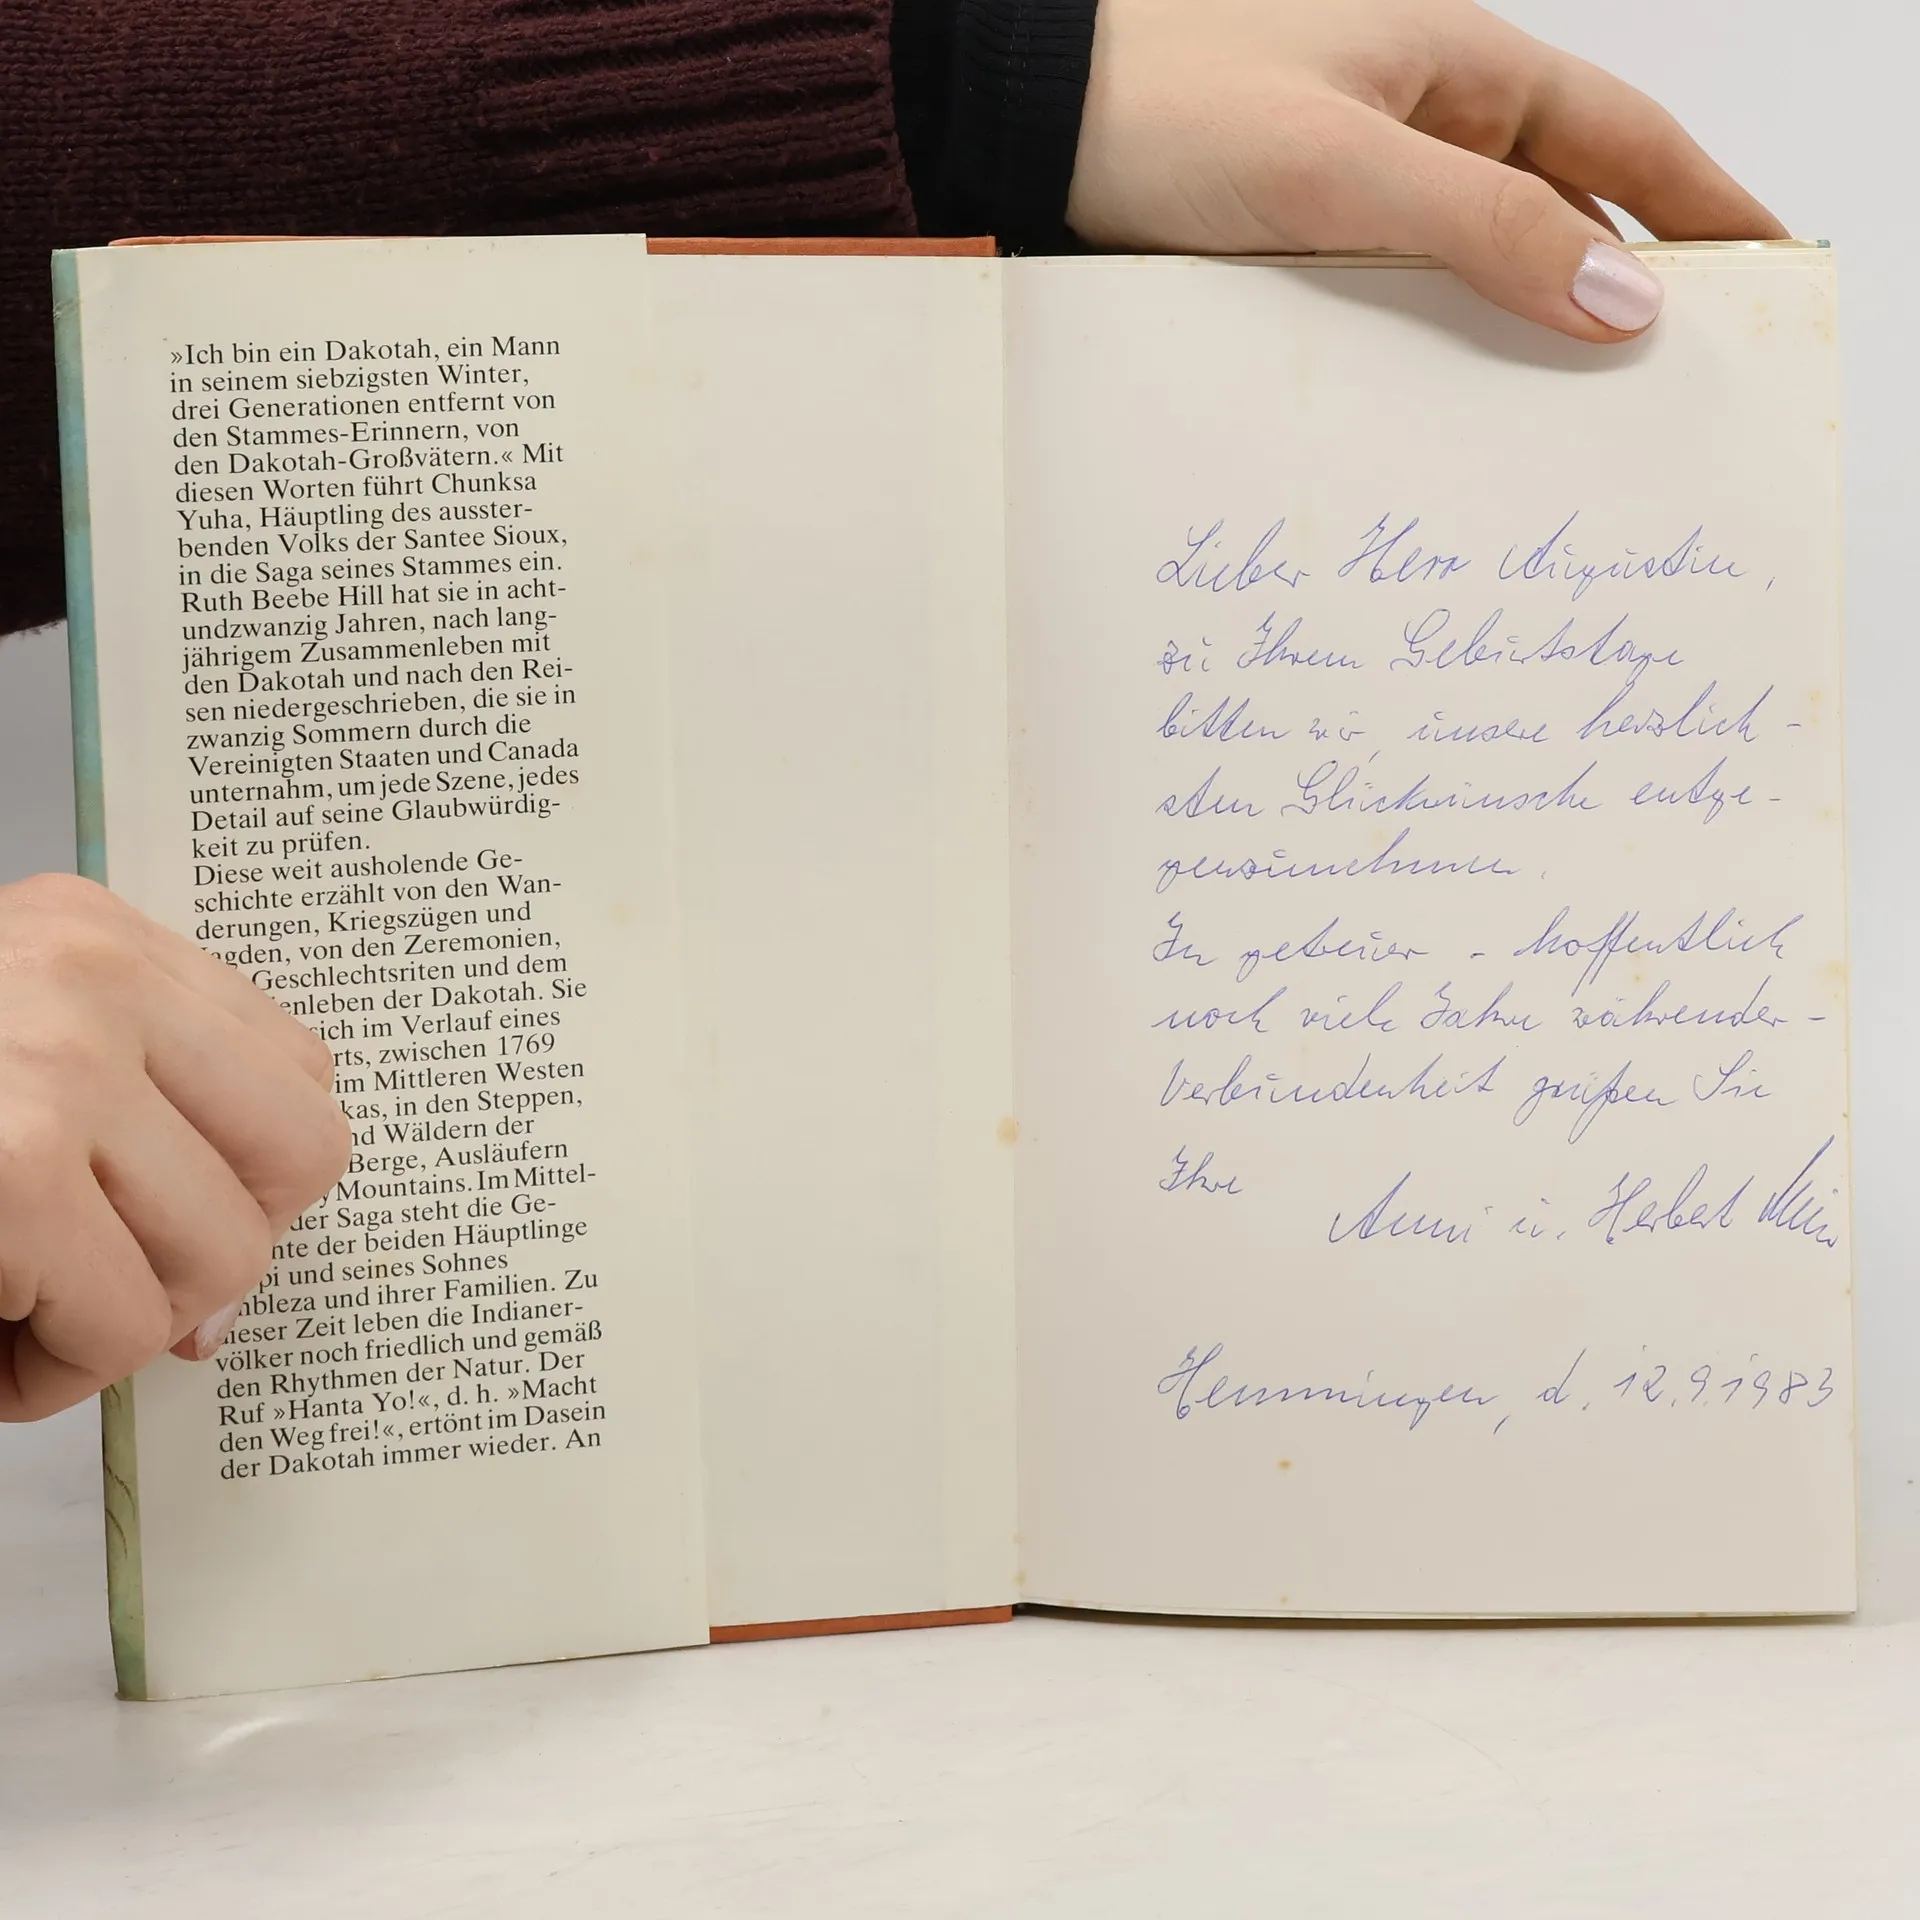 »Ich bin ein Dakotah, ein Mann
in seinem siebzigsten Winter,
drei Generationen entfernt von
den Stammes-Erinnern, von
den Dakotah-Großvätern.« Mit
diesen Worten führt Chunksa
Yuha, Häuptling des ausster-
benden Volks der Santee Sioux,
in die Saga seines Stammes ein.
Ruth Beebe Hill hat sie in acht-
undzwanzig Jahren, nach lang-
jährigem Zusammenleben mit
den Dakotah und nach den Rei-
sen niedergeschrieben, die sie in
zwanzig Sommern durch die
Vereinigten Staaten und Canada
unternahm, um jede Szene, jedes
Detail auf seine Glaubwürdig-
keit zu prüfen.
Diese weit ausholende Ge-
schichte erzählt von den Wan-
derungen, Kriegszügen und
agden, von den Zeremonien,
Geschlechtsriten und dem
enleben der Dakotah. Sie
sich im Verlauf eines
rts, zwischen 1769
im Mittleren Westen
kas, in den Steppen,
nd Wäldern der
Berge, Ausläufern
y Mountains. Im Mittel-
der Saga steht die Ge-
hte der beiden Häuptlinge
pi und seines Sohnes
mbleza und ihrer Familien. Zu
dieser Zeit leben die Indianer-
völker noch friedlich und gemäß
den Rhythmen der Natur. Der
Ruf »Hanta Yo!«, d. h. »Macht
den Weg frei!«, ertönt im Dasein
der Dakotah immer wieder. An
Lieber Herr Augustin,
zu Ihrem Geburtstage
bitten wir, unsere herzlich-
sten Glückwünsche entge-
genzunehmen.
In getreuer - hoffentlich
noch viele Jahre währender -
Verbundenheit grüßen Sie
Ihre
Anni u. Herbert
Hemmingen, d. 12.9.1983